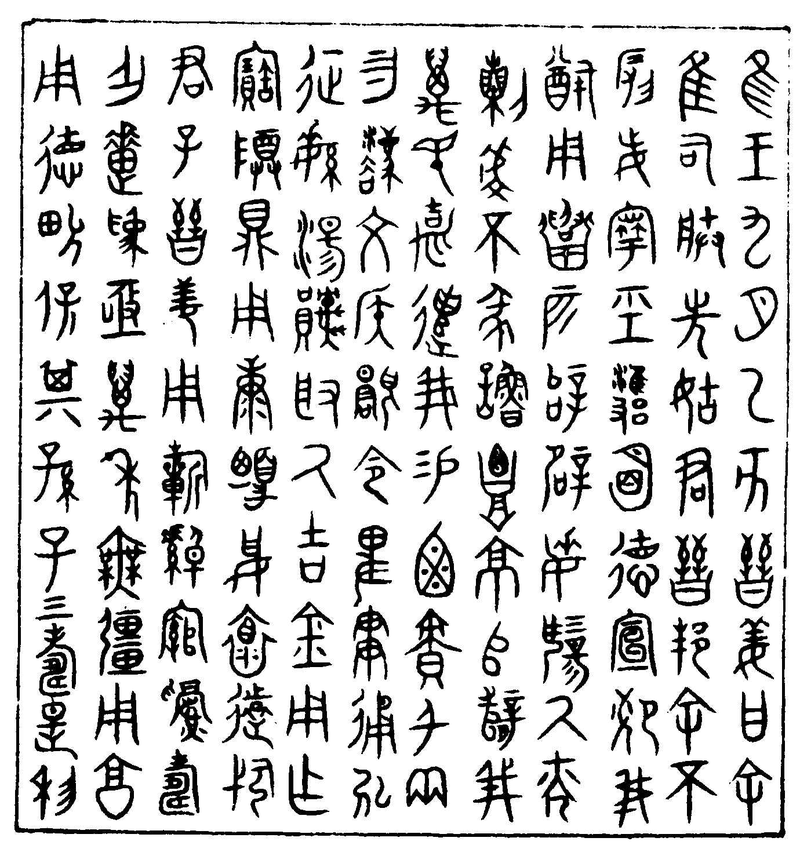 隹王九月乙亥晉姜曰余
隹司朕先姑君晉邦余不
叚妄寧巠雝明德宣卹我
猷用召匹辝辟每揚厥光
剌虔不墜魯覃京師辪我
萬民嘉遣我易鹵責千兩
勿廢文侯顯令卑貫通弘
征繁湯取厥吉金用作
寶尊鼎用康柔綏懷遠邇
君子晉姜用祈綽綰眉壽
作疐為極萬年無疆用享
用德畯保其孫子三壽是利